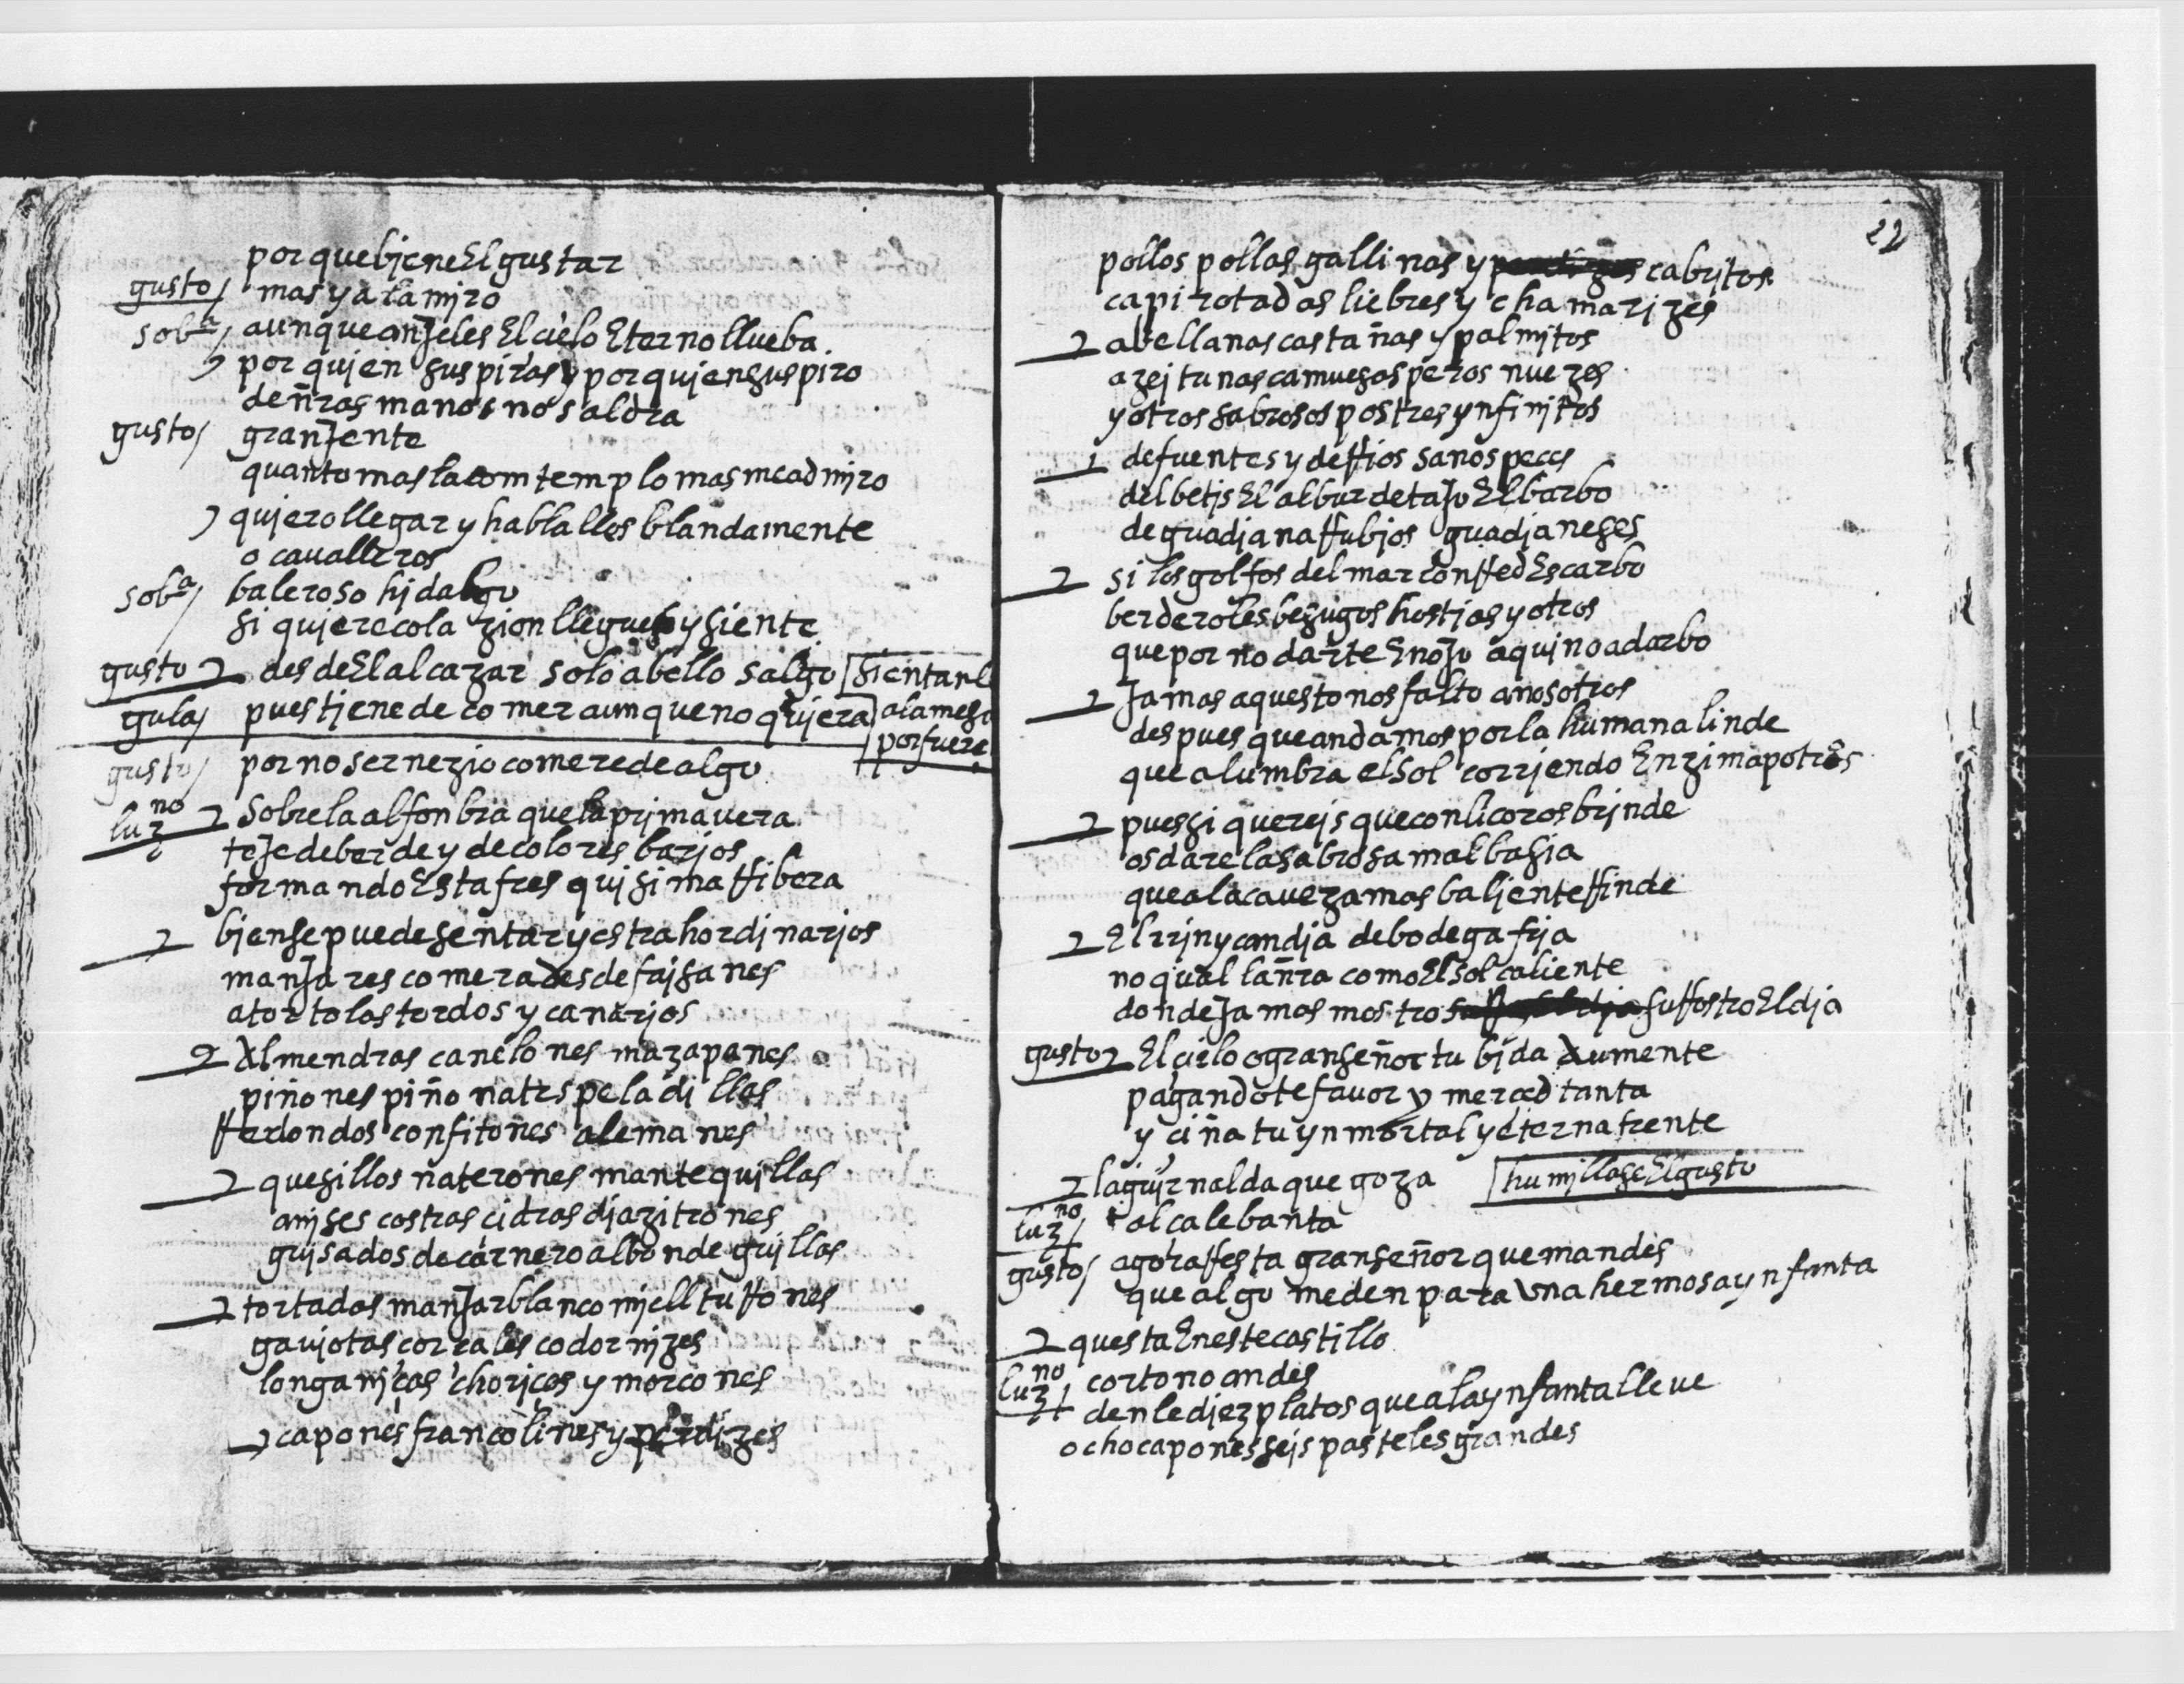 porque bjene El gustar
gusto mas ya la miro
sobª aunque anJeles El cielo Eterno llueba
por quien suspiras y por quien suspiro
de ñras manos no saldra
gusto granJente
quanto mas la comtemplo mas me admjro
qujero llegar y hablallos blandamente
o caualleros
sobª baleroso hjdalgo
si qujere colazion llegue y siente
gusto desde El alcazar solo a bello salgo sientanse
gula pues tjene de comer aumque no qujera a la mesa
por fuerça
gusto por no ser nezio comere de algo
luzno Sobre la alfonbra que la prjmauera
teJe de berde y de colores barjos
formando Esta fresquisima rribera
bjen se puede sentar y estrahordjnarjos
manJares comera desde fajsanes
a tortolas tordos y canarjos
Almendras canelones mazapanes
piñones piñonates peladillas
rredondos confitones alemanes
quesillos naterones mantequjllas
anjses costras cidras djazitrones
gujsados de carnero albondegujllas
tortadas manJar blanco mjell turrones
gaujotas corzales codornjzes
longanjças chorjços y morcones
capones francolines y perdizes
22
pollos pollas gallinas y cabrjtos
capirotadas liebres y chamarjzes
abellanas castañas y palmjtos
azejtunas camuesas peros nuezes
y otros sabrosos postres ynfinjtos
de fuentes y de rrios sanos peces
del betjs El albur de taJo El barbo
de guadjana rrubjos guadjaneses
si los golfos del mar con rred Escarbo
berderoles besugos hostjas y otros
que por no darte EnoJo aqui no adarbo
Jamas aquesto nos falto a nosotros
despues que andamos por la humana linde
que alumbra el sol corrjendo Enzima potros
pues si querejs que con licores brjnde
os dare la sabrosa malbasia
que a la caueza mas baljente rrinde
El rrjn y candja de bodega frja
no qual la ñra como El sol caliente
donde Jamas mostro su rrostro El dja
gusto El cielo o gran señor tu bjda aumente
pagandote fauor y merced tanta
y çiña tu ynmortal y eterna frente
la gujrnalda que goza humjllase El gusto
luzno alca lebanta
gusto agora rresta gran señor que mandes
que algo me den para vna hermosa ynfanta
questa En este castillo
luzno corto no andes
denle djez platos que a la ynfanta lleue
ocho capones sejs pasteles grandes